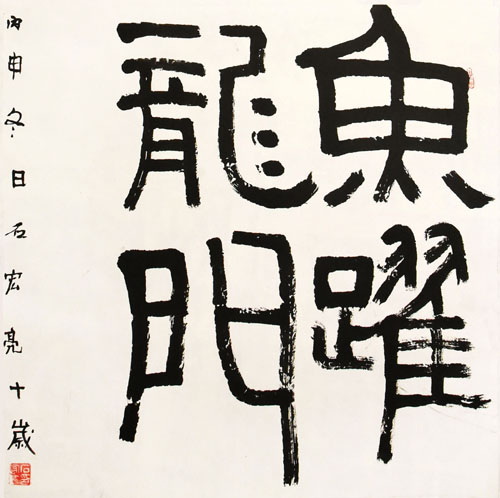 魚躍
龍門
丙申冬日石宏亮十歲